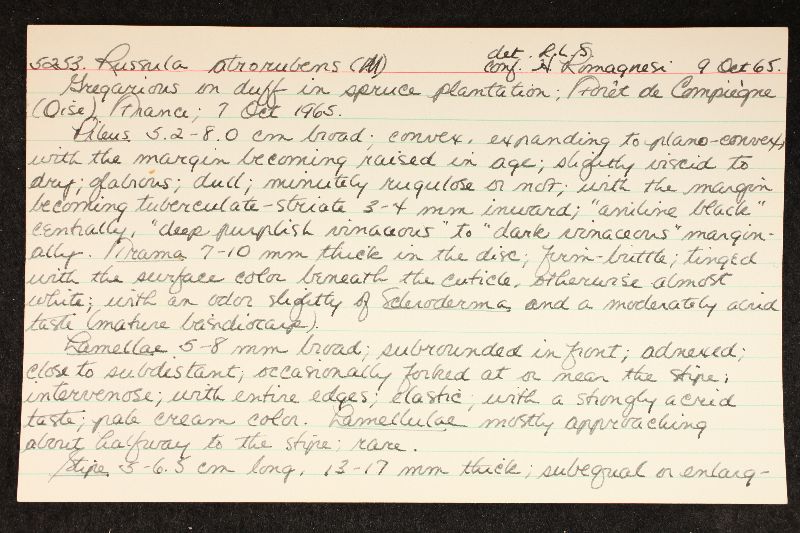 5253. Russula atrorubens (M) det. R.L.S.
conf. H. Romagnesi 9 Oct 65.
Gregarious on duff in spruce plantation; Forêt de Compiègne
(Oise), France; 7 Oct 1965.
Pileus 5.2-8.0 cm broad; convex, expanding to plano-convex,
with the margin becoming raised in age; slightly viscid to
dry; glabrous; dull; minutely rugulose or not; with the margin
becoming tuberculate-striate 3-4 mm inward; "aniline black"
centrally, "deep purplish vinaceous" to "dark vinaceous" margin-
ally. Trama 7-10 mm thick in the disc; firm-brittle; tinged
with the surface color beneath the cuticle, otherwise almost
white; with an odor slightly of Scleroderma, and a moderately acrid
taste (mature basidiocarp).
Lamellae 5-8 mm broad; subrounded in front; adnexed;
close to subdistant; occasionally forked at or near the stipe;
intervenose; with entire edges; elastic; with a strongly acrid
taste; pale cream color. Lamellulae mostly approaching
about halfway to the stipe; rare.
Stipe 5-6.5 cm long, 13-17 mm thick; subequal or enlarg-